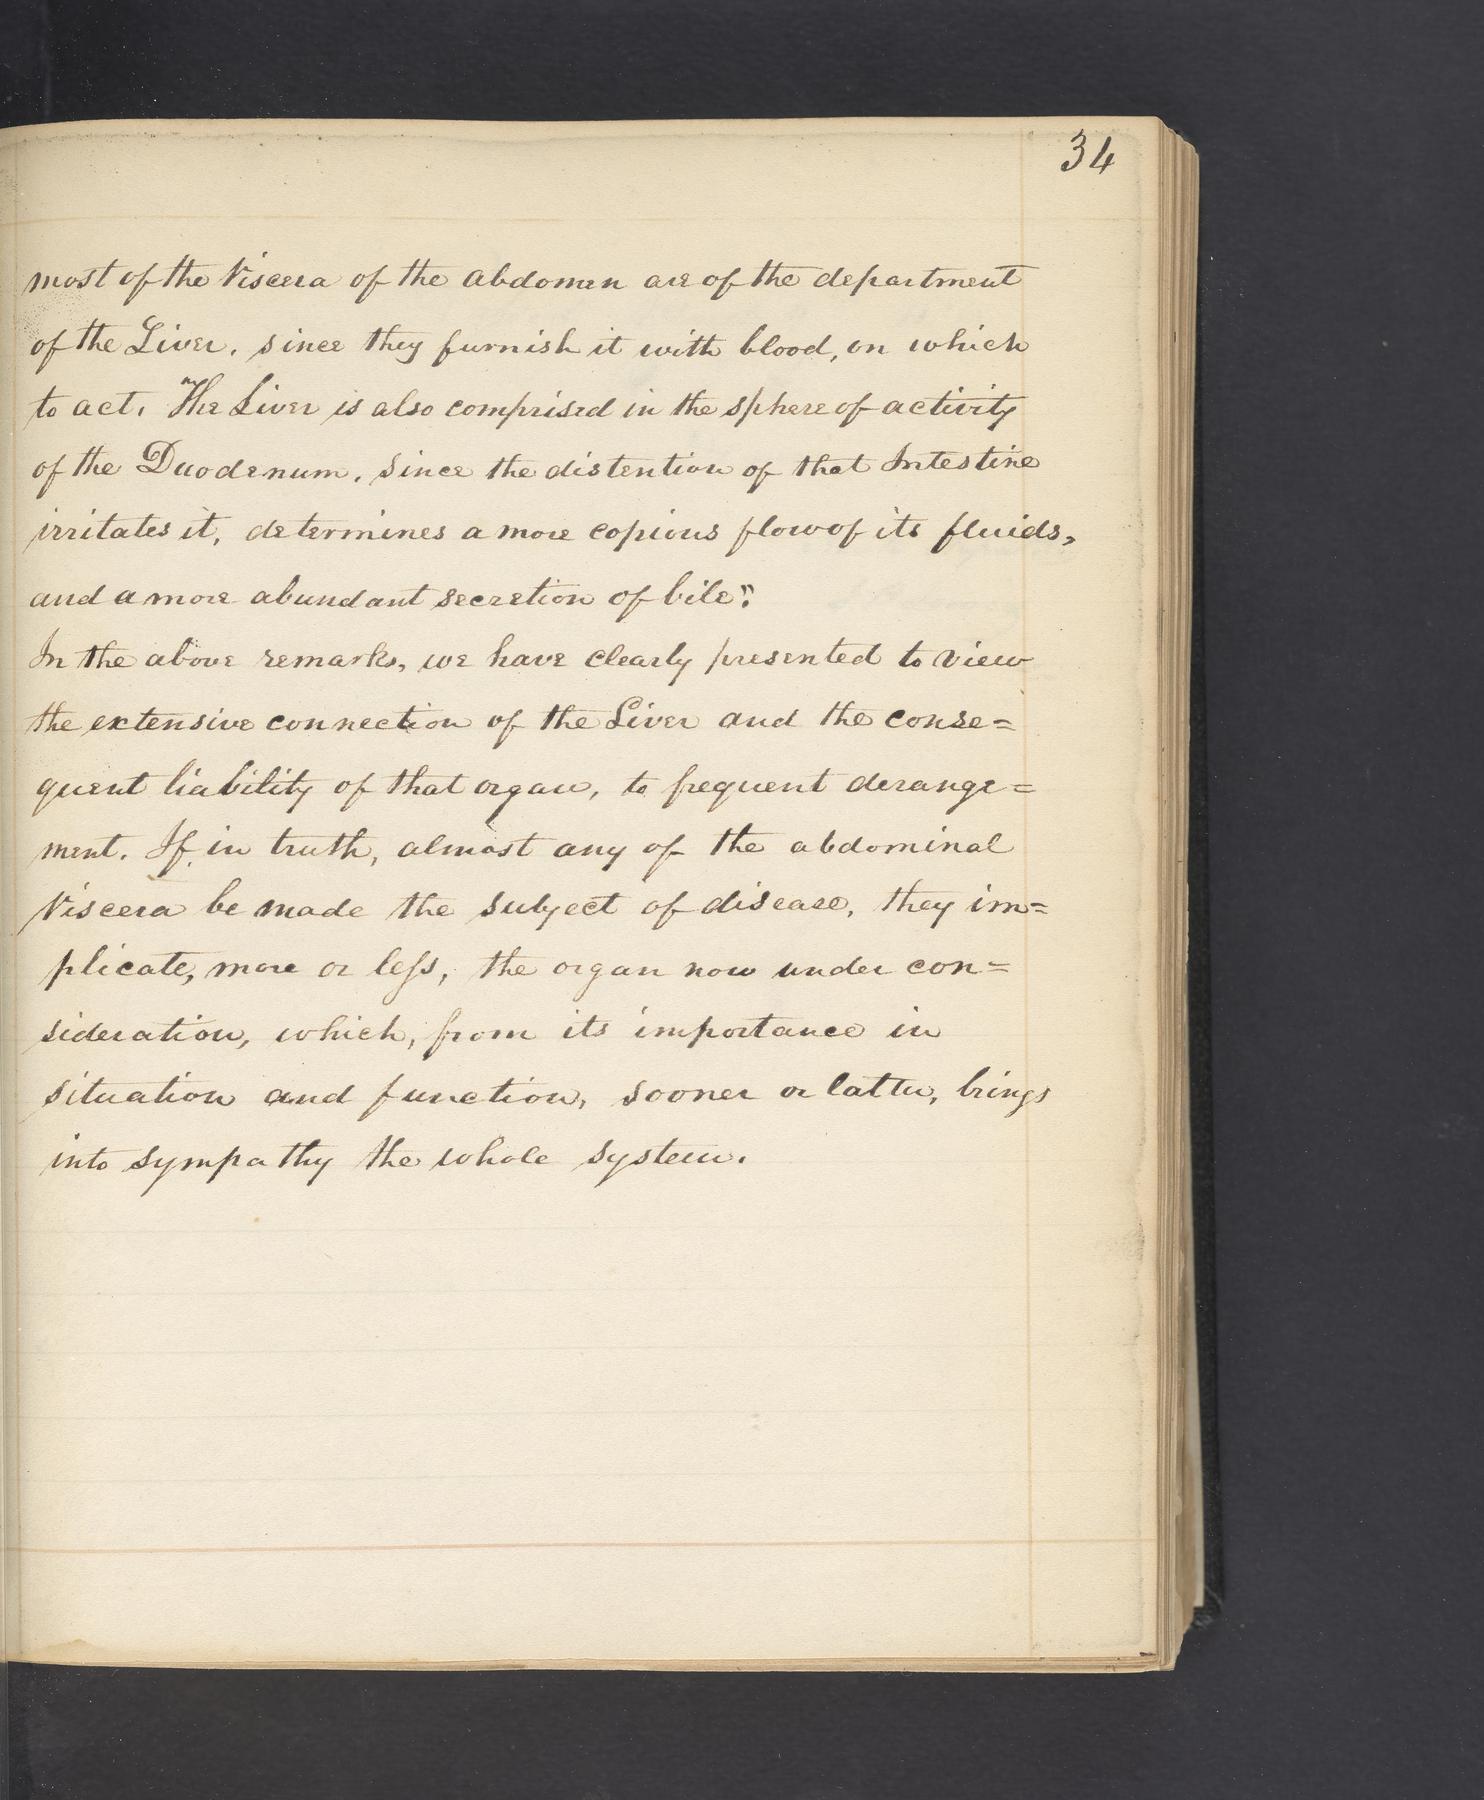 34
most of the Viscera of the abdomen are of the department
of the Liver, since they furnish it with blood, on which
to act. "The Liver is also comprised in the sphere of activity
of the Duodenum, since the distention of that Intestine
irritates it, determines a more copious flow of its fluids,
and a more abundant secretion of bile".
In the above remarks, we have clearly presented to view
the extensive connection of the Liver and the conse=
quent liability of that organ, to frequent derange=
ment. If, in truth, almost any of the abdominal
Viscera be made the subject of disease, they im=
plicate, more or less, the organ now under con=
sideration, which, from its importance in
situation and function, sooner or latter, brings
into sympathy the whole system.